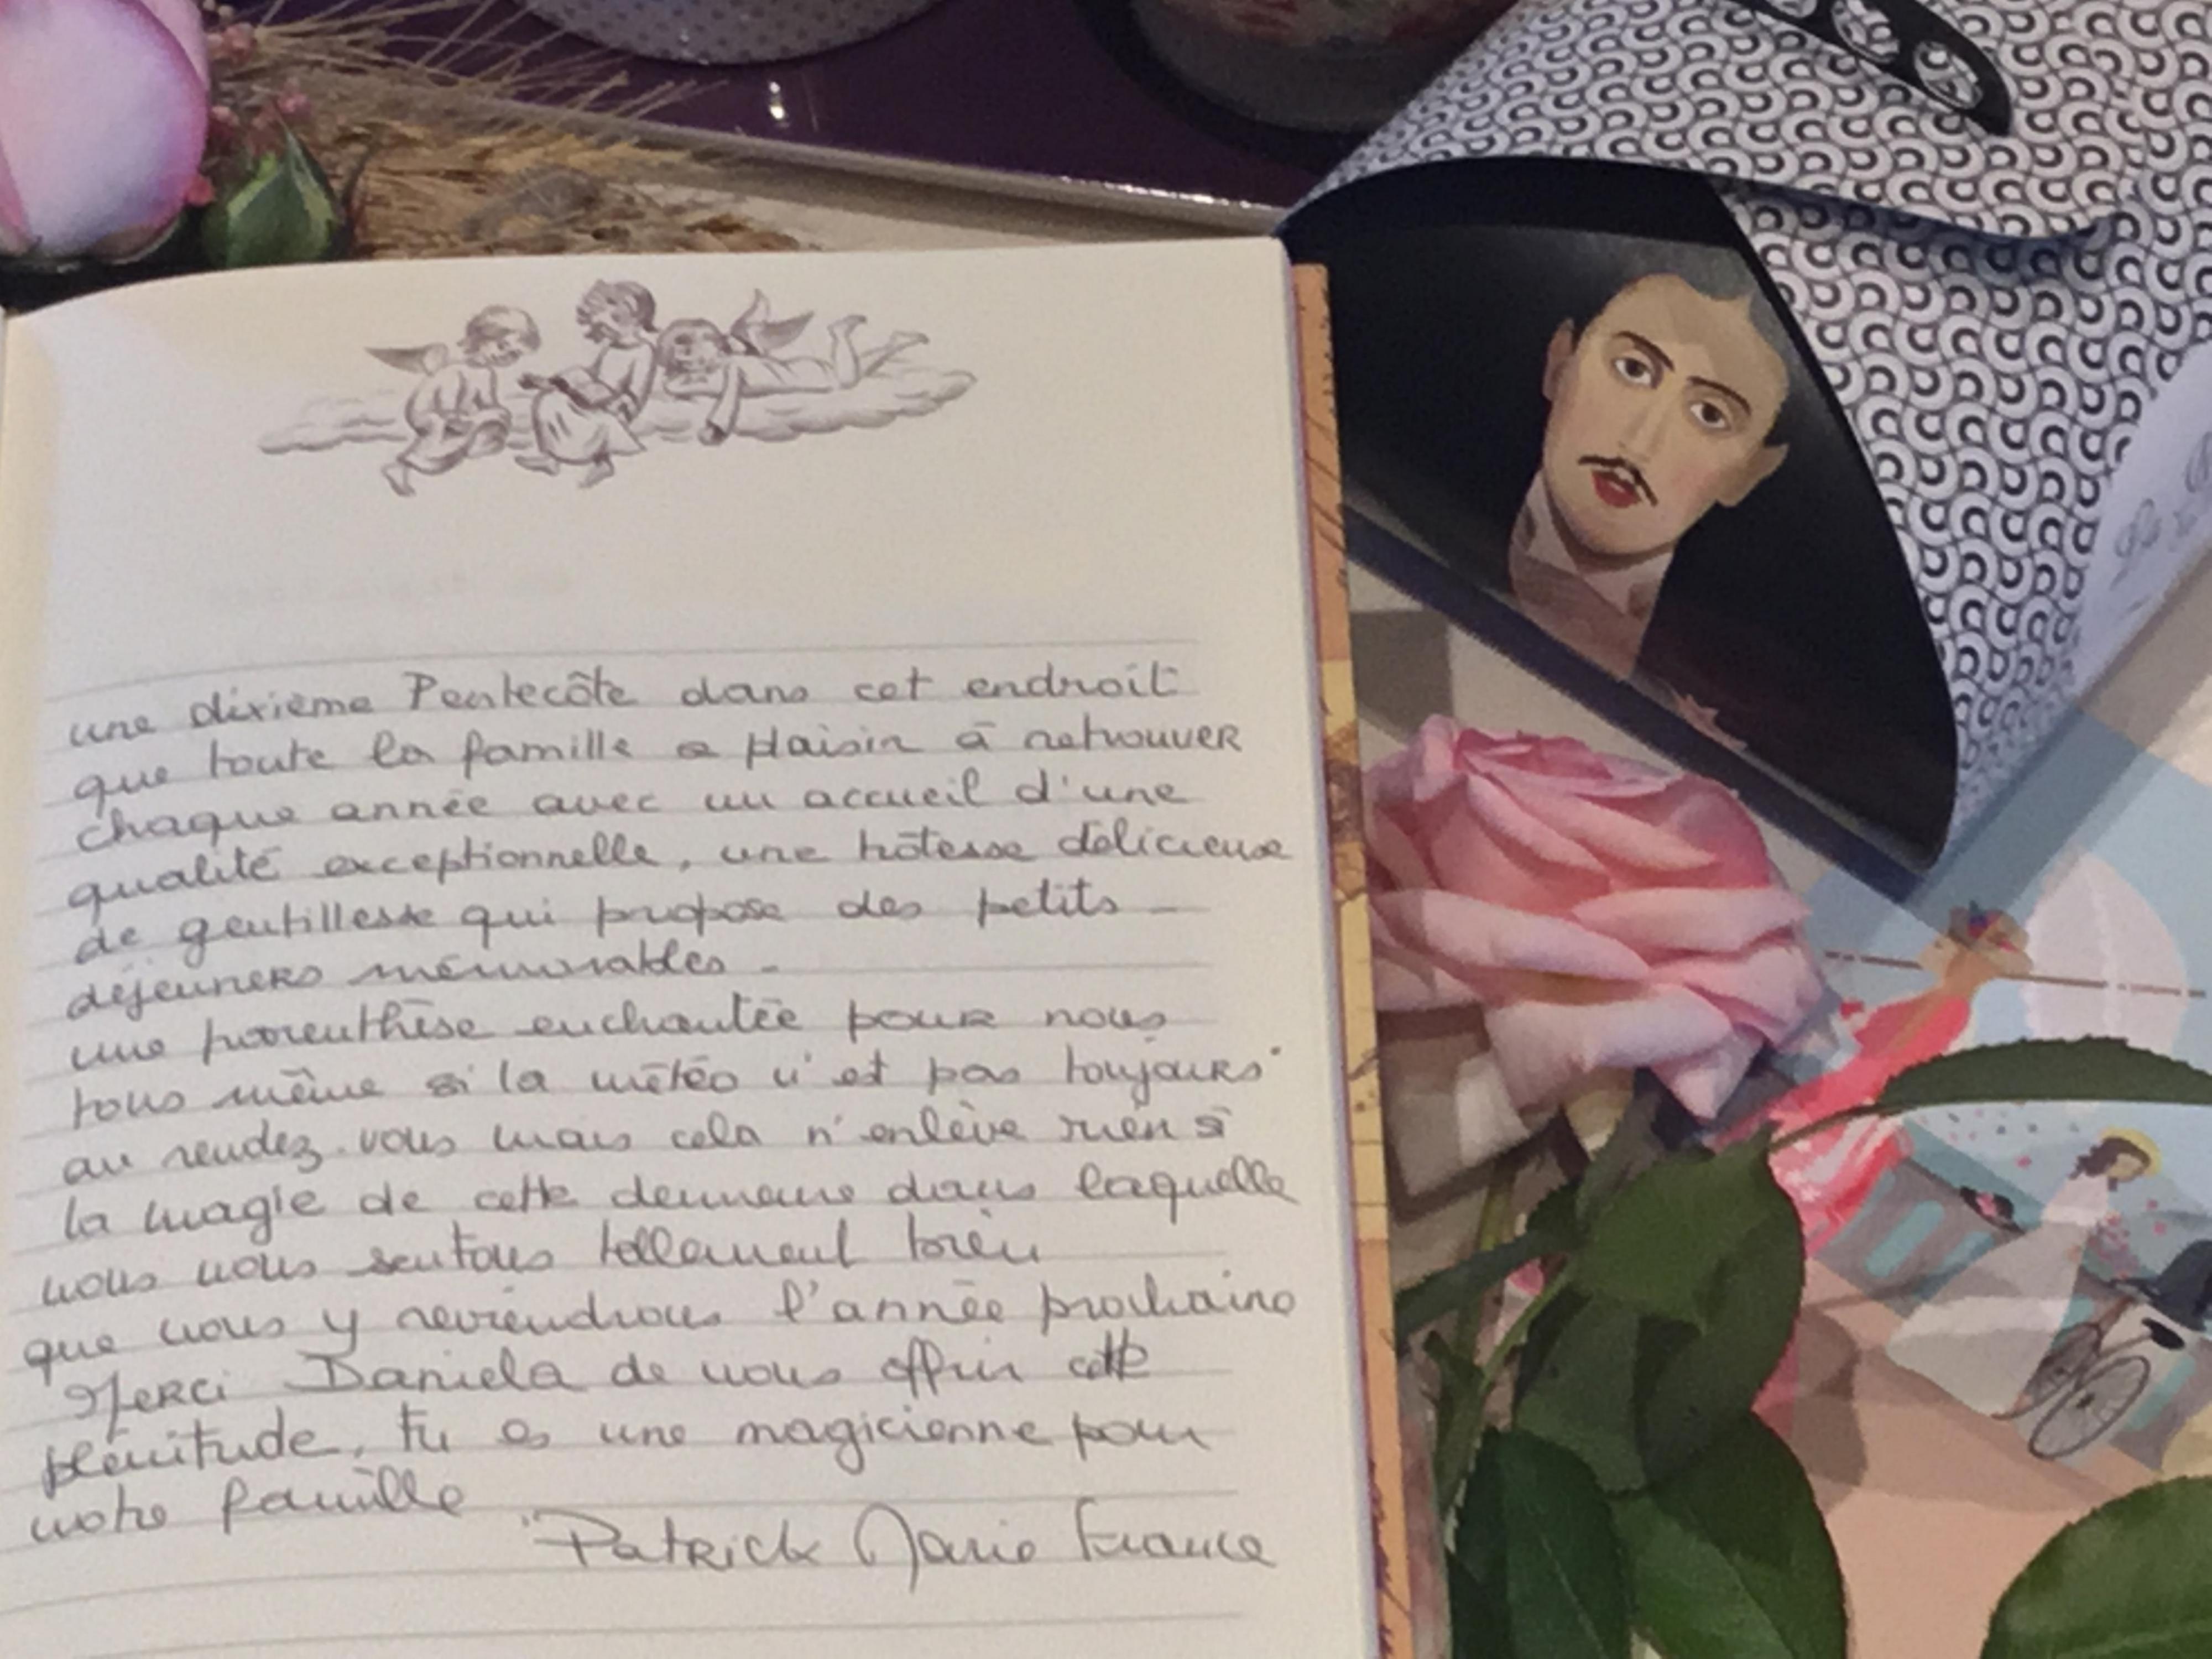 une dixième Pentecôte dans cet endroit
que toute la famille a plaisir à retrouver
chaque année avec un accueil d'une
qualité exceptionnelle, une hôtesse délicieuse
de gentillesse qui propose des petits -
déjeuners mémorables -
une parenthèse enchantée pour nous
tous même si la météo n'est pas toujours
au rendez-vous mais cela n'enlève rien à
la magie de cette demeure dans laquelle
nous nous sentons tellement bien
que nous y reviendrons l'année prochaine
Merci Daniela de nous offrir cette
plénitude, tu es une magicienne pour
notre famille
Patrick Marie France